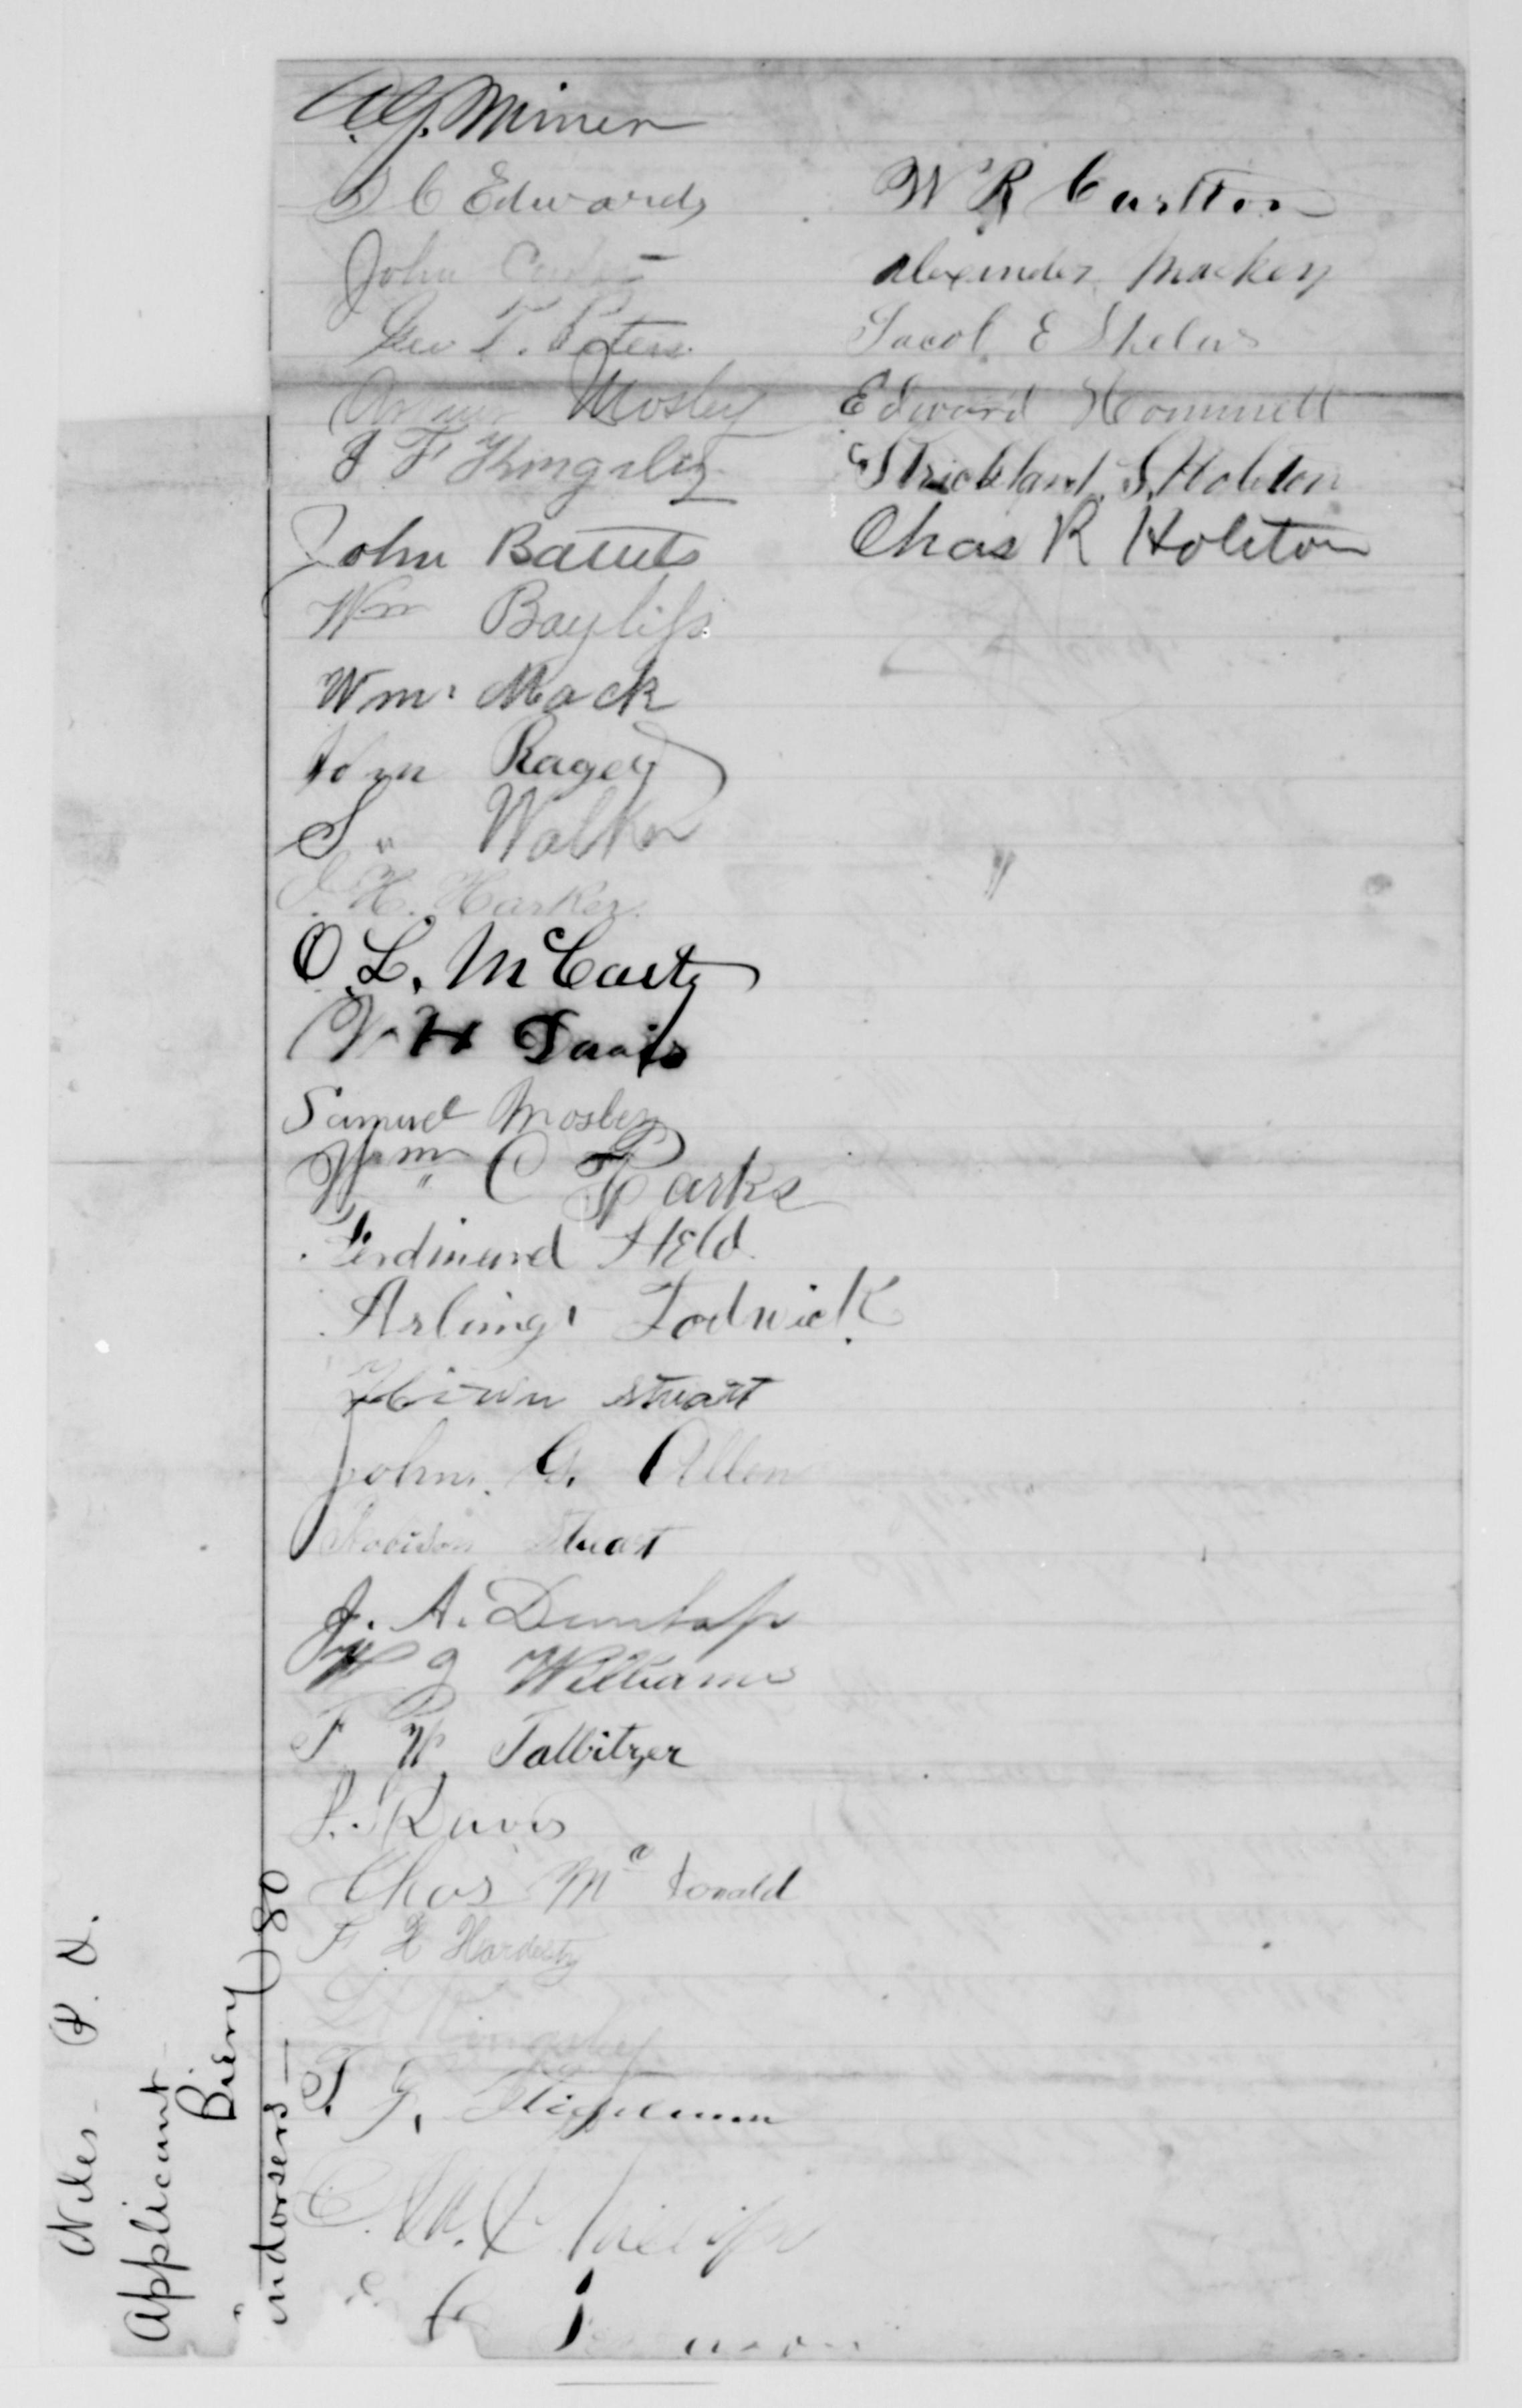 A.G. Miner
S C Edwards
John
Geo T. Peters
Mosley
J F Kingsley
John Batuets
Wm Bayliss
Wm. Mack
John Ragey
S. Walker
J. H. Harker
O. L. McCarty
W H Davis
Samuel Mosley
Wm C Parks
Ferdinand Held
Arling Lodwick
Hiram Stuart
John. G. Allen
Stuart
J. A. Dunlap
W J Williams
T W Talbitzer
S. Davis
Chas McDonald
F H Hardesty
Kingsley
T. G.
C. W. Phillips
W R Carlton
Alexinder Mackey
Jacob E Shelers
Edward Hommell
Strickland S. Holiton
Chas R Holiton
Niles P. O.
Applicant
Biery
indorsers — 80